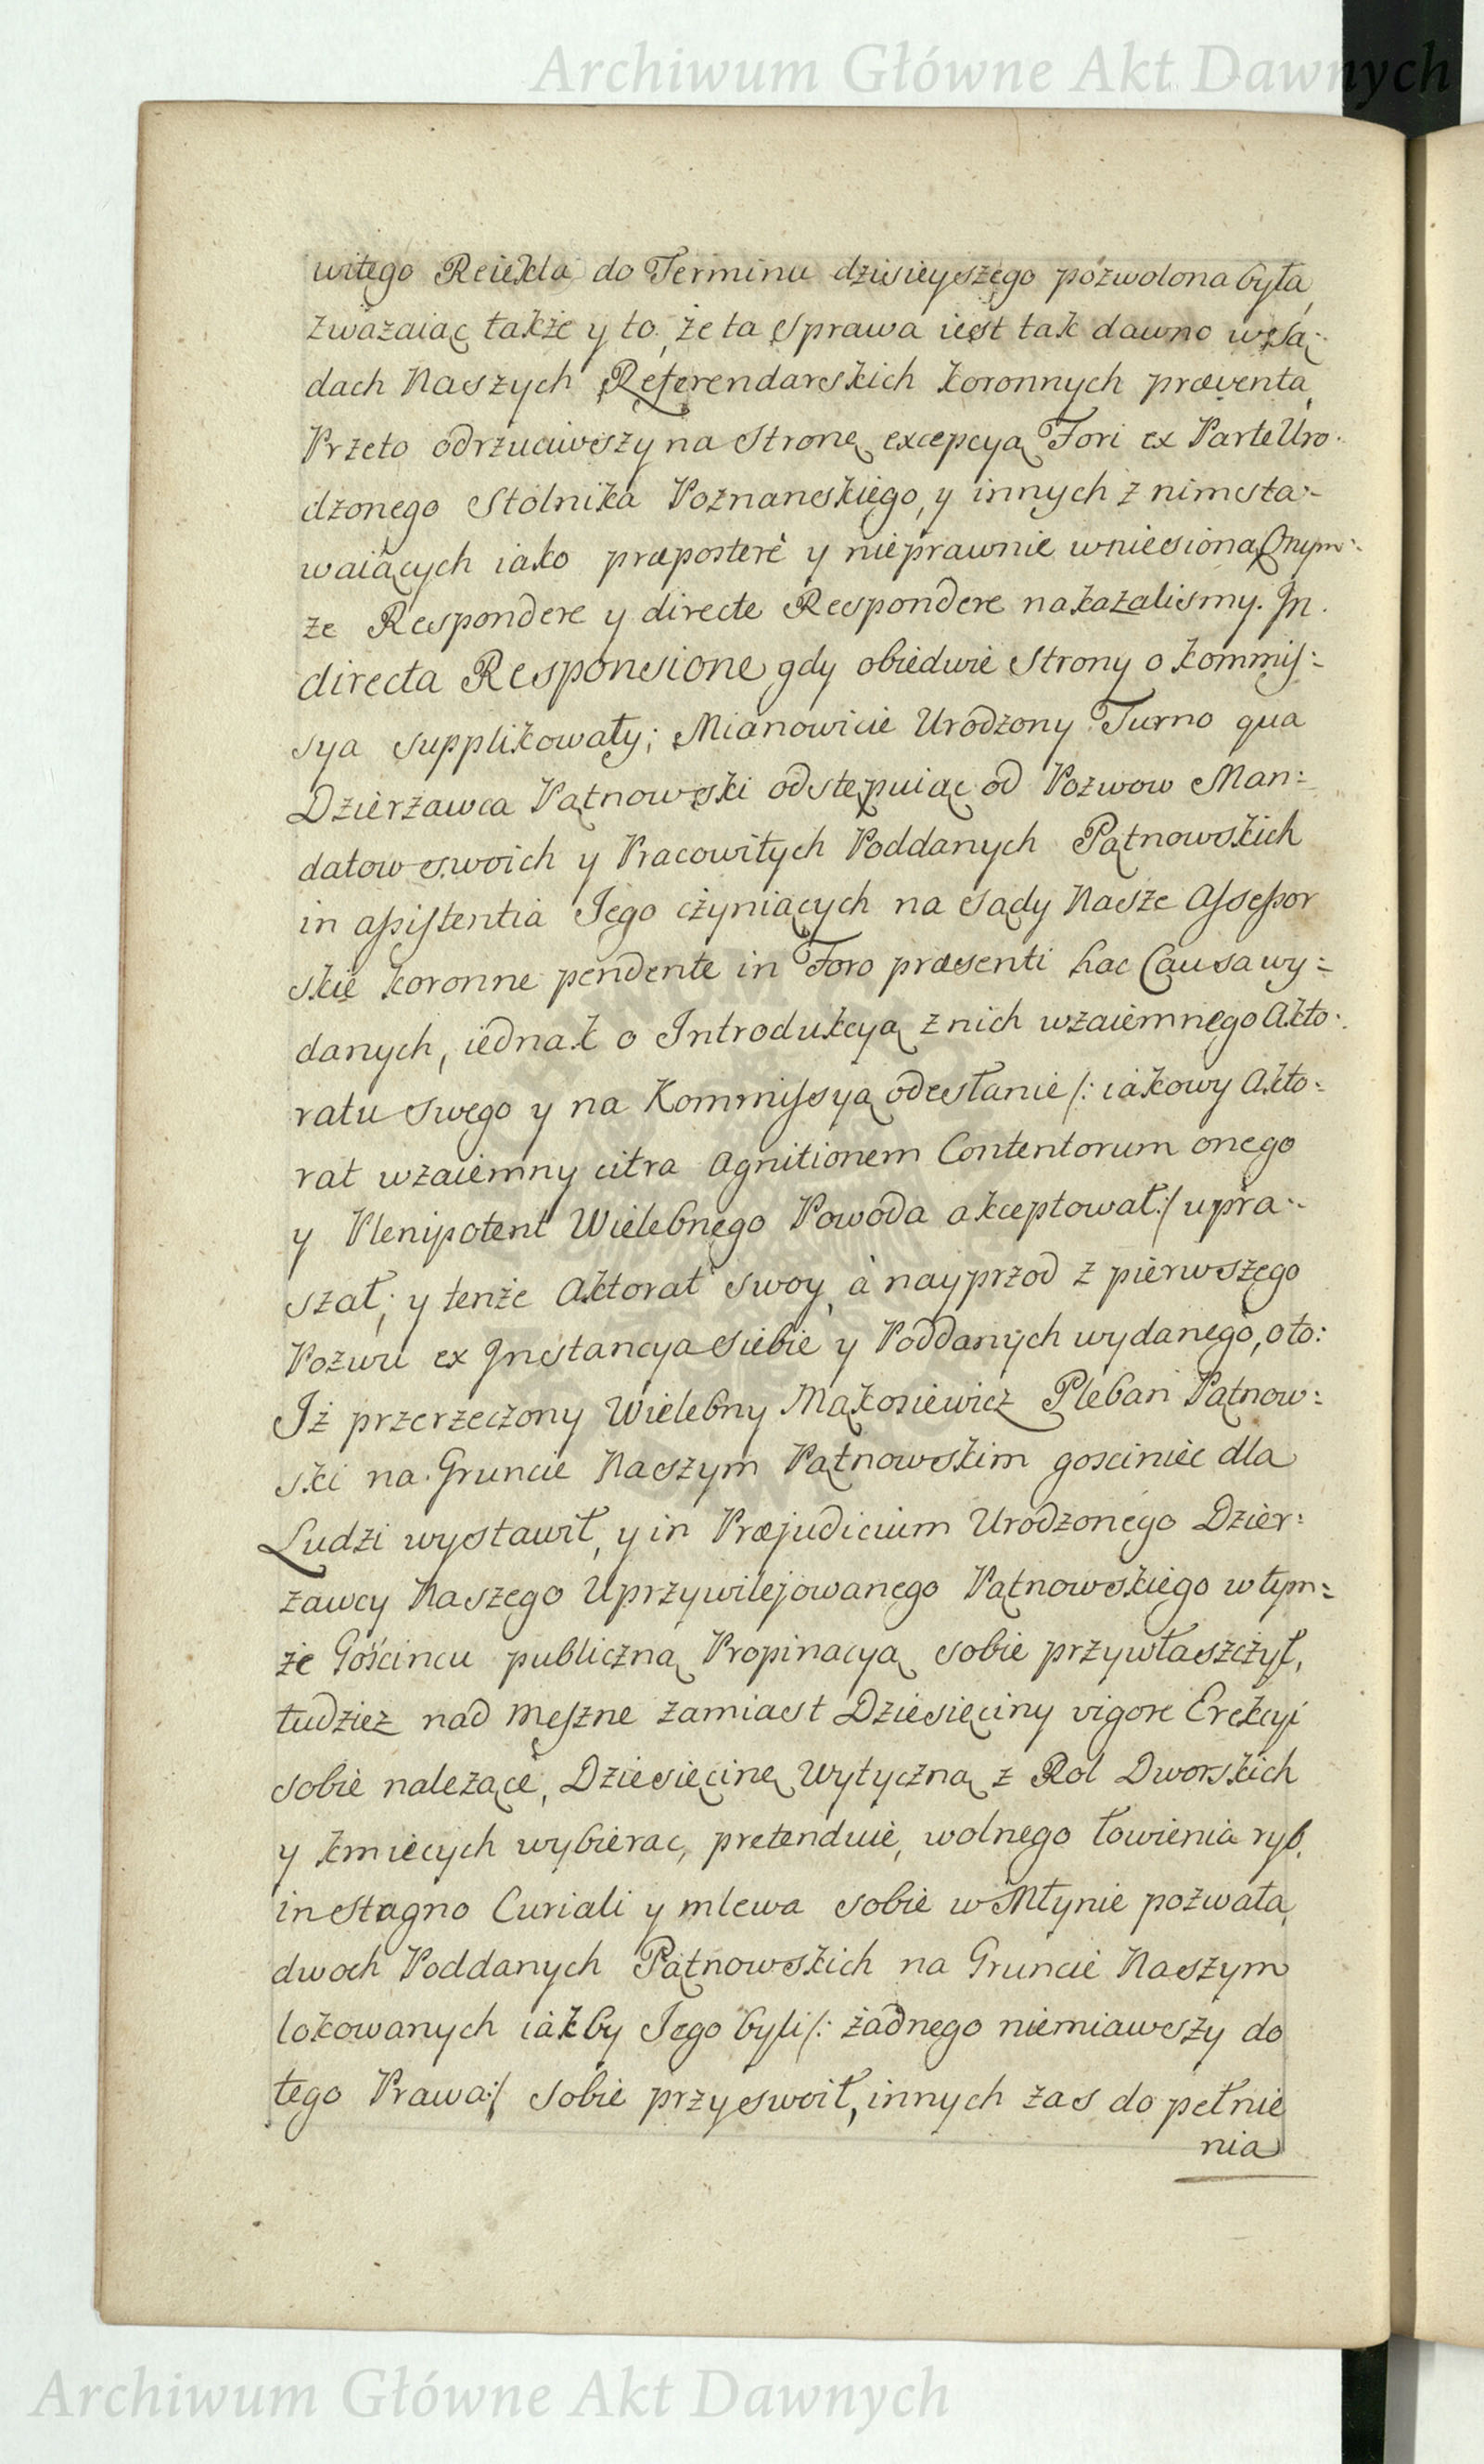 Archiwum Główne Akt Dawnych
witego Reiekla do Terminu dzisieyszego pozwolona była,
zważaiąc także y to, że ta sprawa iest tak dawno w Są:
dach Naszych Referendarskich koronnych præventa,
Przeto odrzuciwszy na Stronę excepcyą Fori ex Parte Uro:
dzonego Stolnika Poznanskiego, y innych z nim sta:
waiących iako præposterè y nieprawnie wniesioną Onym:
że Respondere y directe Respondere nakazalismy. In
directa Responsione gdy obiedwie Strony o kommis:
sya supplikowały; Mianowicie Urodzony Turno qua
Dzierżawca Pątnowski odstępuiąc od Pozwow Man:
datow swoich y Pracowitych Poddanych Pątnowskich
in assistentia Jego czyniących na sądy Nasze Assessor
skie koronne pendente in Foro præsenti hac Causa wy:
danych, iednak o Introdukcyą z nich wzaiemnego Akto:
ratu swego y na Kommissyą odesłanie /: iakowy Akto:
rat wzaiemny citra Agnitionem Contentorum onego
y Plenipotent Wielebnego Powoda akceptował :/ upra:
szał; y tenże Aktorat swoy, à nayprzod z pierwszego
Pozwu ex Instancya siebie y Poddanych wydanego, oto:
Iż przerzeczony Wielebny Mąkosiewicz Pleban Pątnow:
ski na Gruncie Naszym Pątnowskim gosciniec dla
Ludzi wystawił, y in Præjudicium Urodzonego Dzier:
żawcy Naszego Uprzywilejowanego Pątnowskiego w tym:
że Gościncu publiczną Propinacyą sobie przywłaszczył,
tudziez nad Meszne zamiast Dziesięciny vigore Erekcyi
sobie należące, Dziesięcinę Wytyczną z Rol Dworskich
y kmiecych wybierac, pretenduie, wolnego łowienia ryb.
in Stagno Curiali y mlewa sobie w Młynie pozwala,
dwoch Poddanych Pątnowskich na Gruncie Naszym
lokowanych iakby Jego byli /: żadnego niemiawszy do
tego Prawa :/ sobie przyswoił, innych zas do pełnie
nia
Archiwum Główne Akt Dawnych